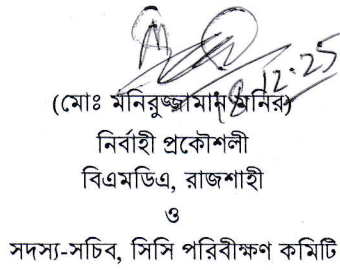 18.12.25
(মোঃ মনিরুজ্জামান মনির)
নির্বাহী প্রকৌশলী
বিএমডিএ, রাজশাহী
ও
সদস্য-সচিব, সিসি পরিবীক্ষণ কমিটি